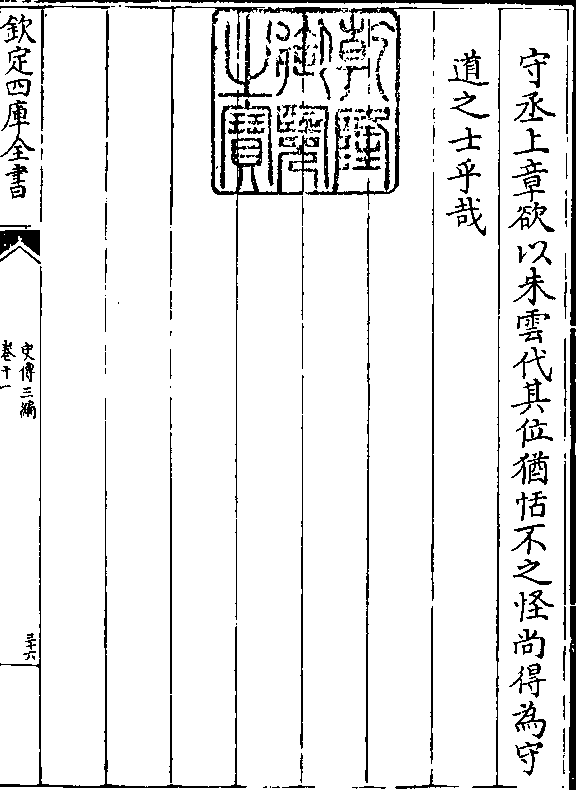 守丞上章欲以朱雲代其位猶恬不之怪尚得為守
道之士乎哉
乾隆
御覽
之寶
欽定四庫全書
史傳三編
卷十一
三十六